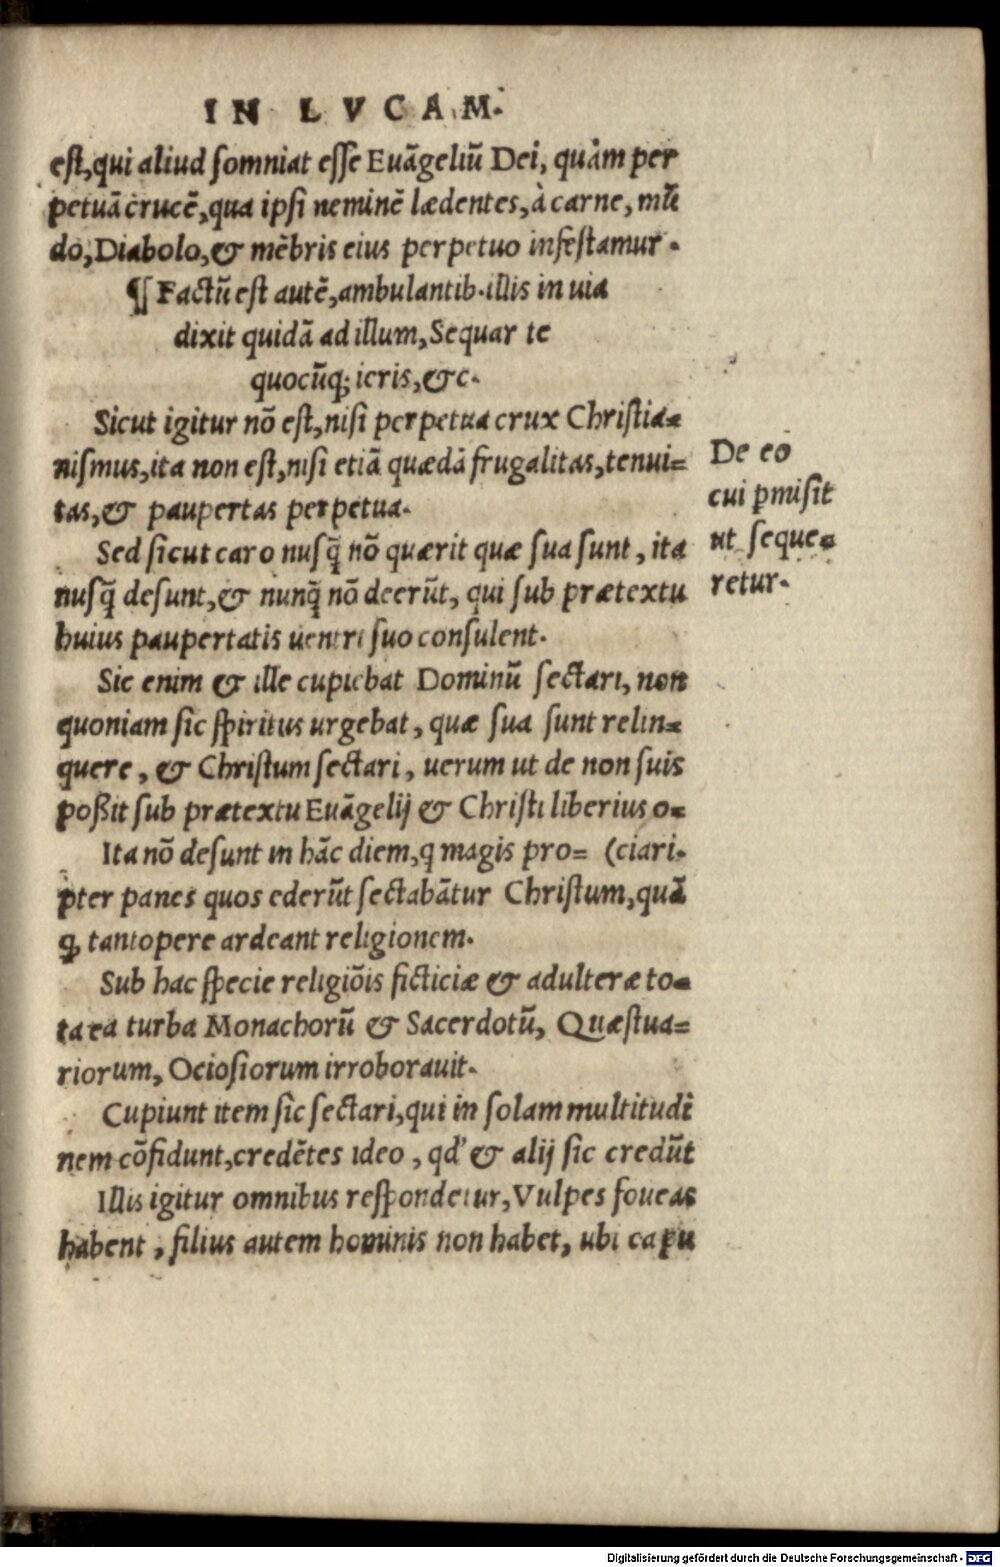 IN LVCAM.
est, qui aliud somniat esse Euãgeliũ Dei, quàm per
petuã crucẽ, qua ipsi neminẽ lædentes, à carne, mũ
do, Diabolo, & mẽbris eius perpetuo infestamur.
¶ Factũ est autẽ, ambulantib. illis in uia
dixit quidã ad illum, Sequar te
quocũq; ieris, &c.
Sicut igitur nõ est, nisi perpetua crux Christia=
nismus, ita non est, nisi etiã quædã frugalitas, tenui=
tas, & paupertas perpetua.
Sed sicut caro nusq̃ nõ quærit quæ sua sunt, ita
nusq̃ desunt, & nunq̃ nõ deerũt, qui sub prætextu
huius paupertatis uentri suo consulent.
Sic enim & ille cupiebat Dominũ sectari, non
quoniam sic spiritus urgebat, quæ sua sunt relin=
quere, & Christum sectari, uerum ut de non suis
poßit sub prætextu Euãgelij & Christi liberius o=
Ita nõ desunt in hãc diem, q magis pro= (ciari.
pter panes quos ederũt sectabãtur Christum, quã
ꝙ tantopere ardeant religionem.
Sub hac specie religiõis ficticiæ & adulteræ to=
ta ea turba Monachorũ & Sacerdotũ, Quæstua=
riorum, Ociosiorum irroborauit.
Cupiunt item sic sectari, qui in solam multitudi
nem cõfidunt, credẽtes ideo, qd' & alij sic credũt
Illis igitur omnibus respondetur, Vulpes foueas
habent, filius autem hominis non habet, ubi capu
De eo
cui ꝓmisit
ut seque=
retur.
Digitalisierung gefördert durch die Deutsche Forschungsgemeinschaft - DFG